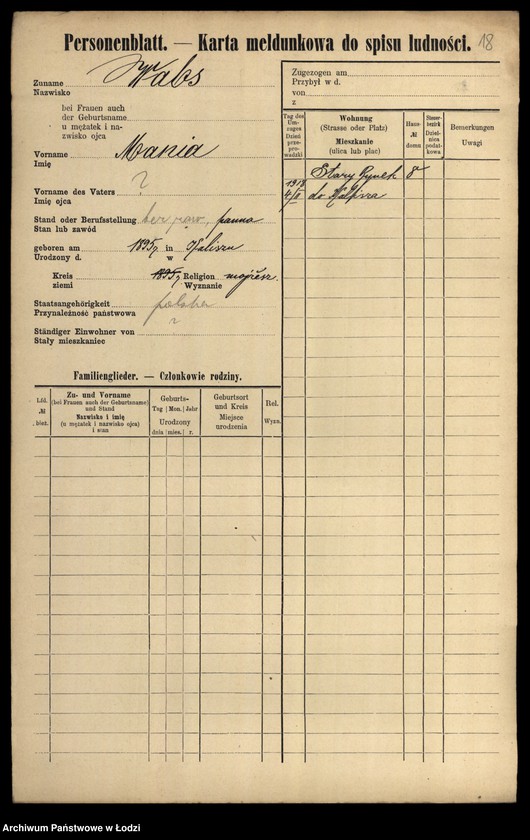 Personenblatt. — Karta meldunkowa do spisu ludności. 18
Zuname Wabs
Nazwisko
bei Frauen auch
der Geburtsname
u mężatek i na-
zwisko ojca
Vorname Mania
Imię
Vorname des Vaters ?
Imię ojca
Stand oder Berufsstellung panna
Stan lub zawód
geboren am 1895 r. in Kaliszu
Urodzony d. w
Kreis 1895 r. Religion mojżesz.
ziemi Wyznanie
Staatsangehörigkeit polska
Przynależność państwowa
Ständiger Einwohner von ?
Stały mieszkaniec
Zugezogen am
Przybył w d.
von
z
Tag des Um-zuges Dzień prze-pro-wadzki
Wohnung
(Strasse oder Platz)
Mieszkanie
(ulica lub plac)
Haus-
№
domu
Steuer-bezirk Dziel-nica podat-kowa
Bemerkungen
Uwagi
Stary Rynek 8
1918
4/II do
Familienglieder. — Członkowie rodziny.
Lfd.
№
bież.
Zu- und Vorname
(bei Frauen auch der Geburtsname)
und Stand
Nazwisko i imię
(u mężatek i nazwisko ojca)
i stan
Geburts-
Tag | Mon. | Jahr
Urodzony
dnia | mies. | r.
Geburtsort
und Kreis
Miejsce
urodzenia
Rel.
Wyzn.
Archiwum Państwowe w Łodzi